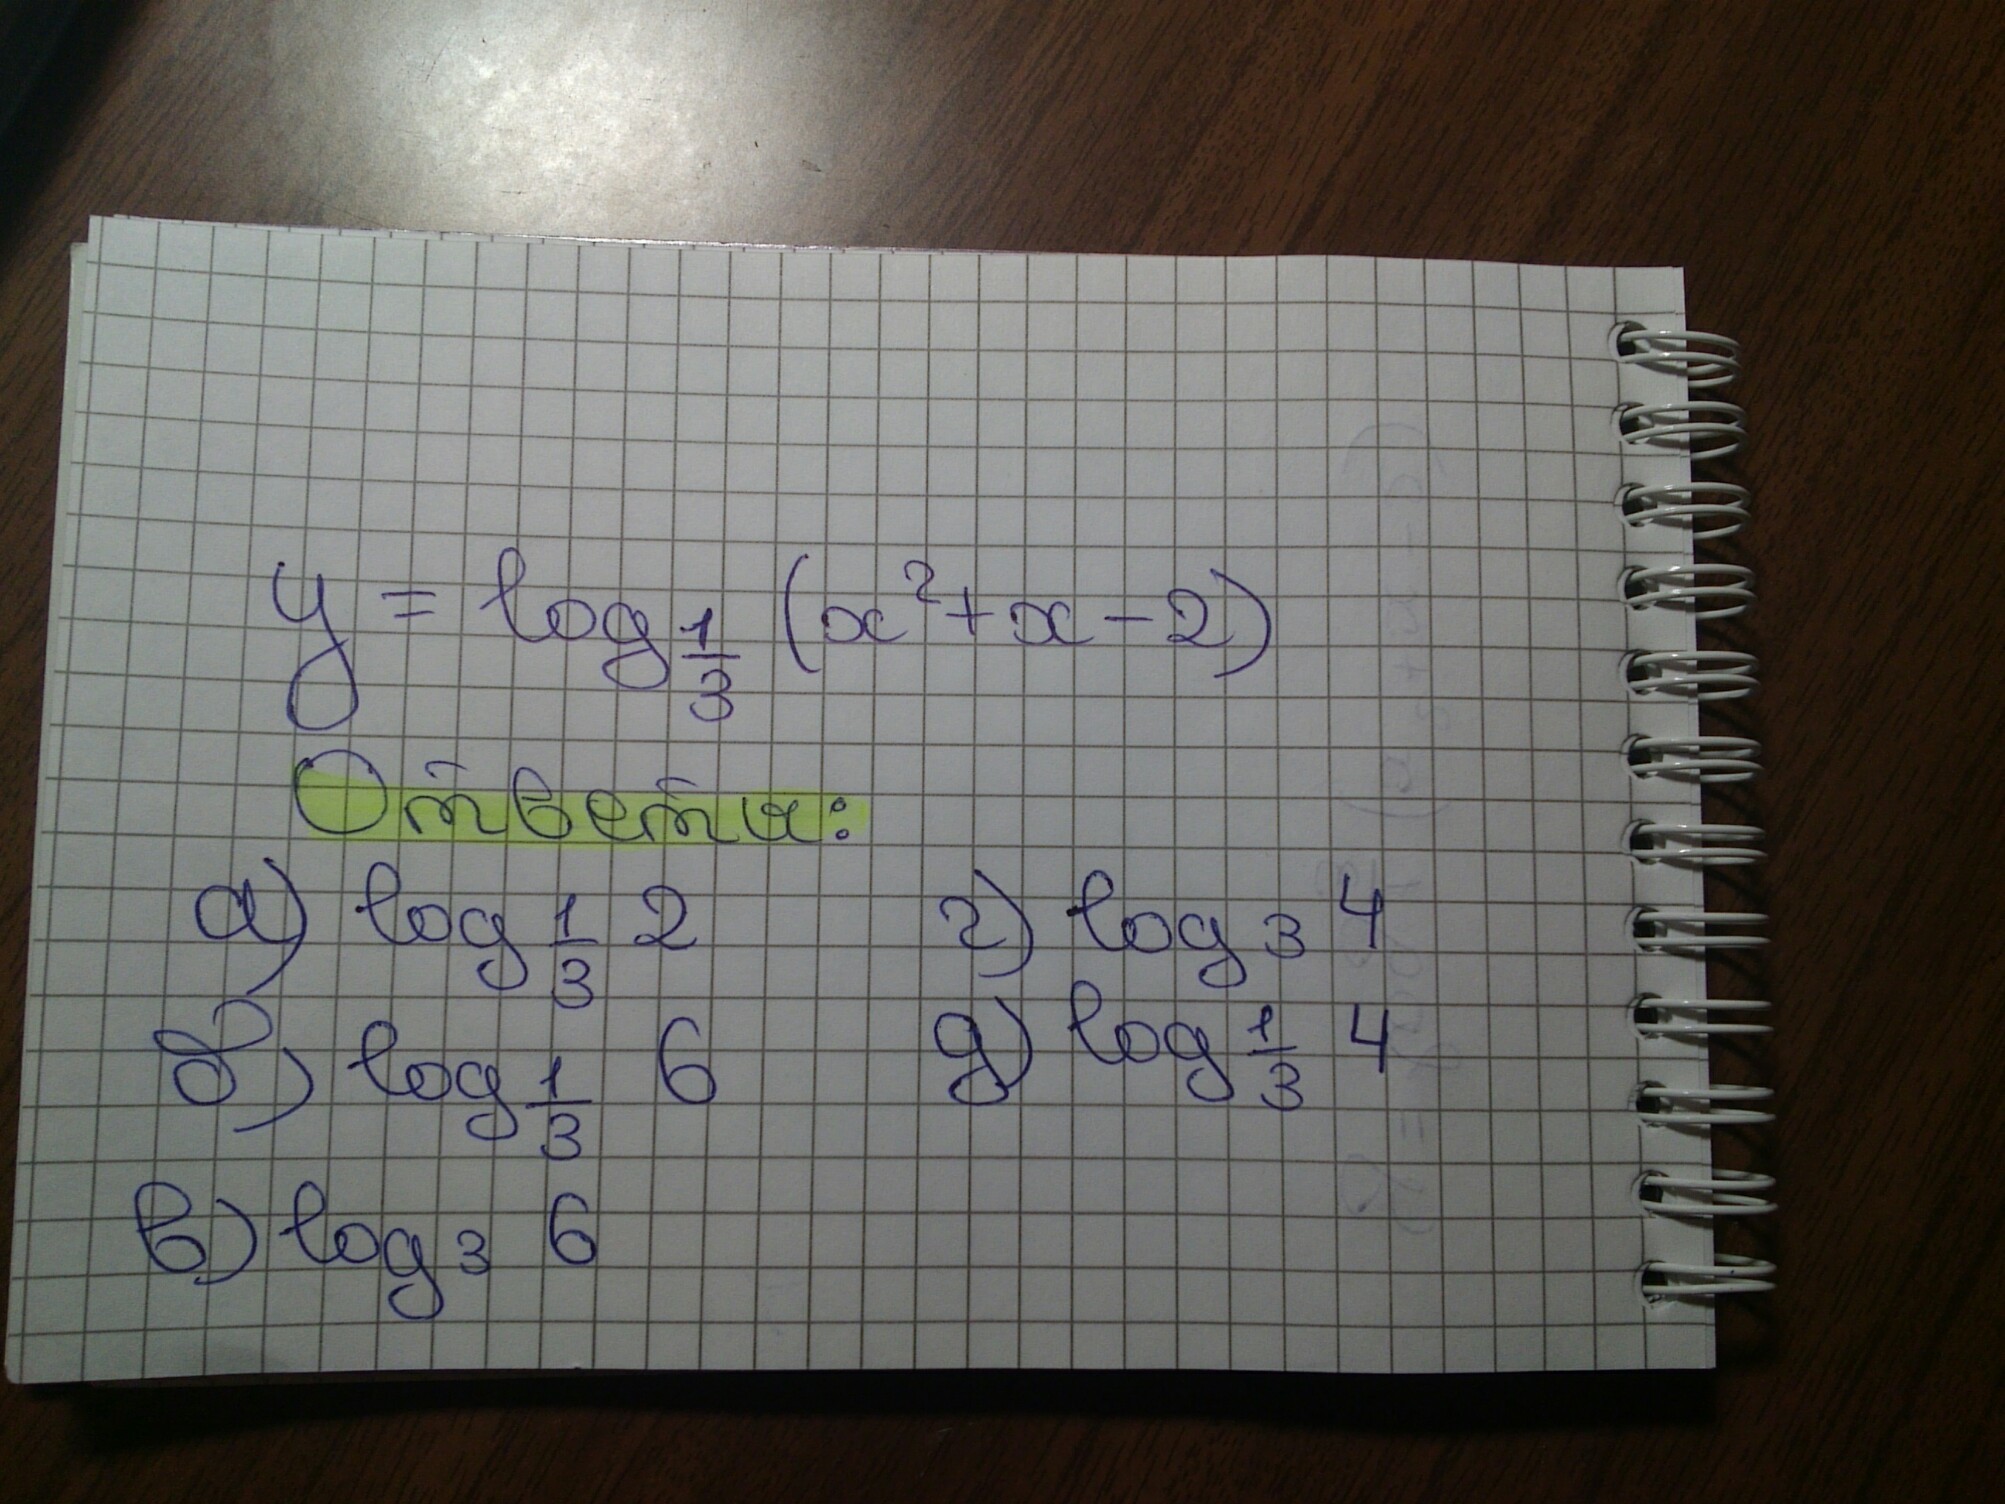 y = log 1/3 (x²+x-2)
Ответы:
а) log 1/3 2
б) log 1/3 6
в) log 3 6
г) log 3 4
д) log 1/3 4